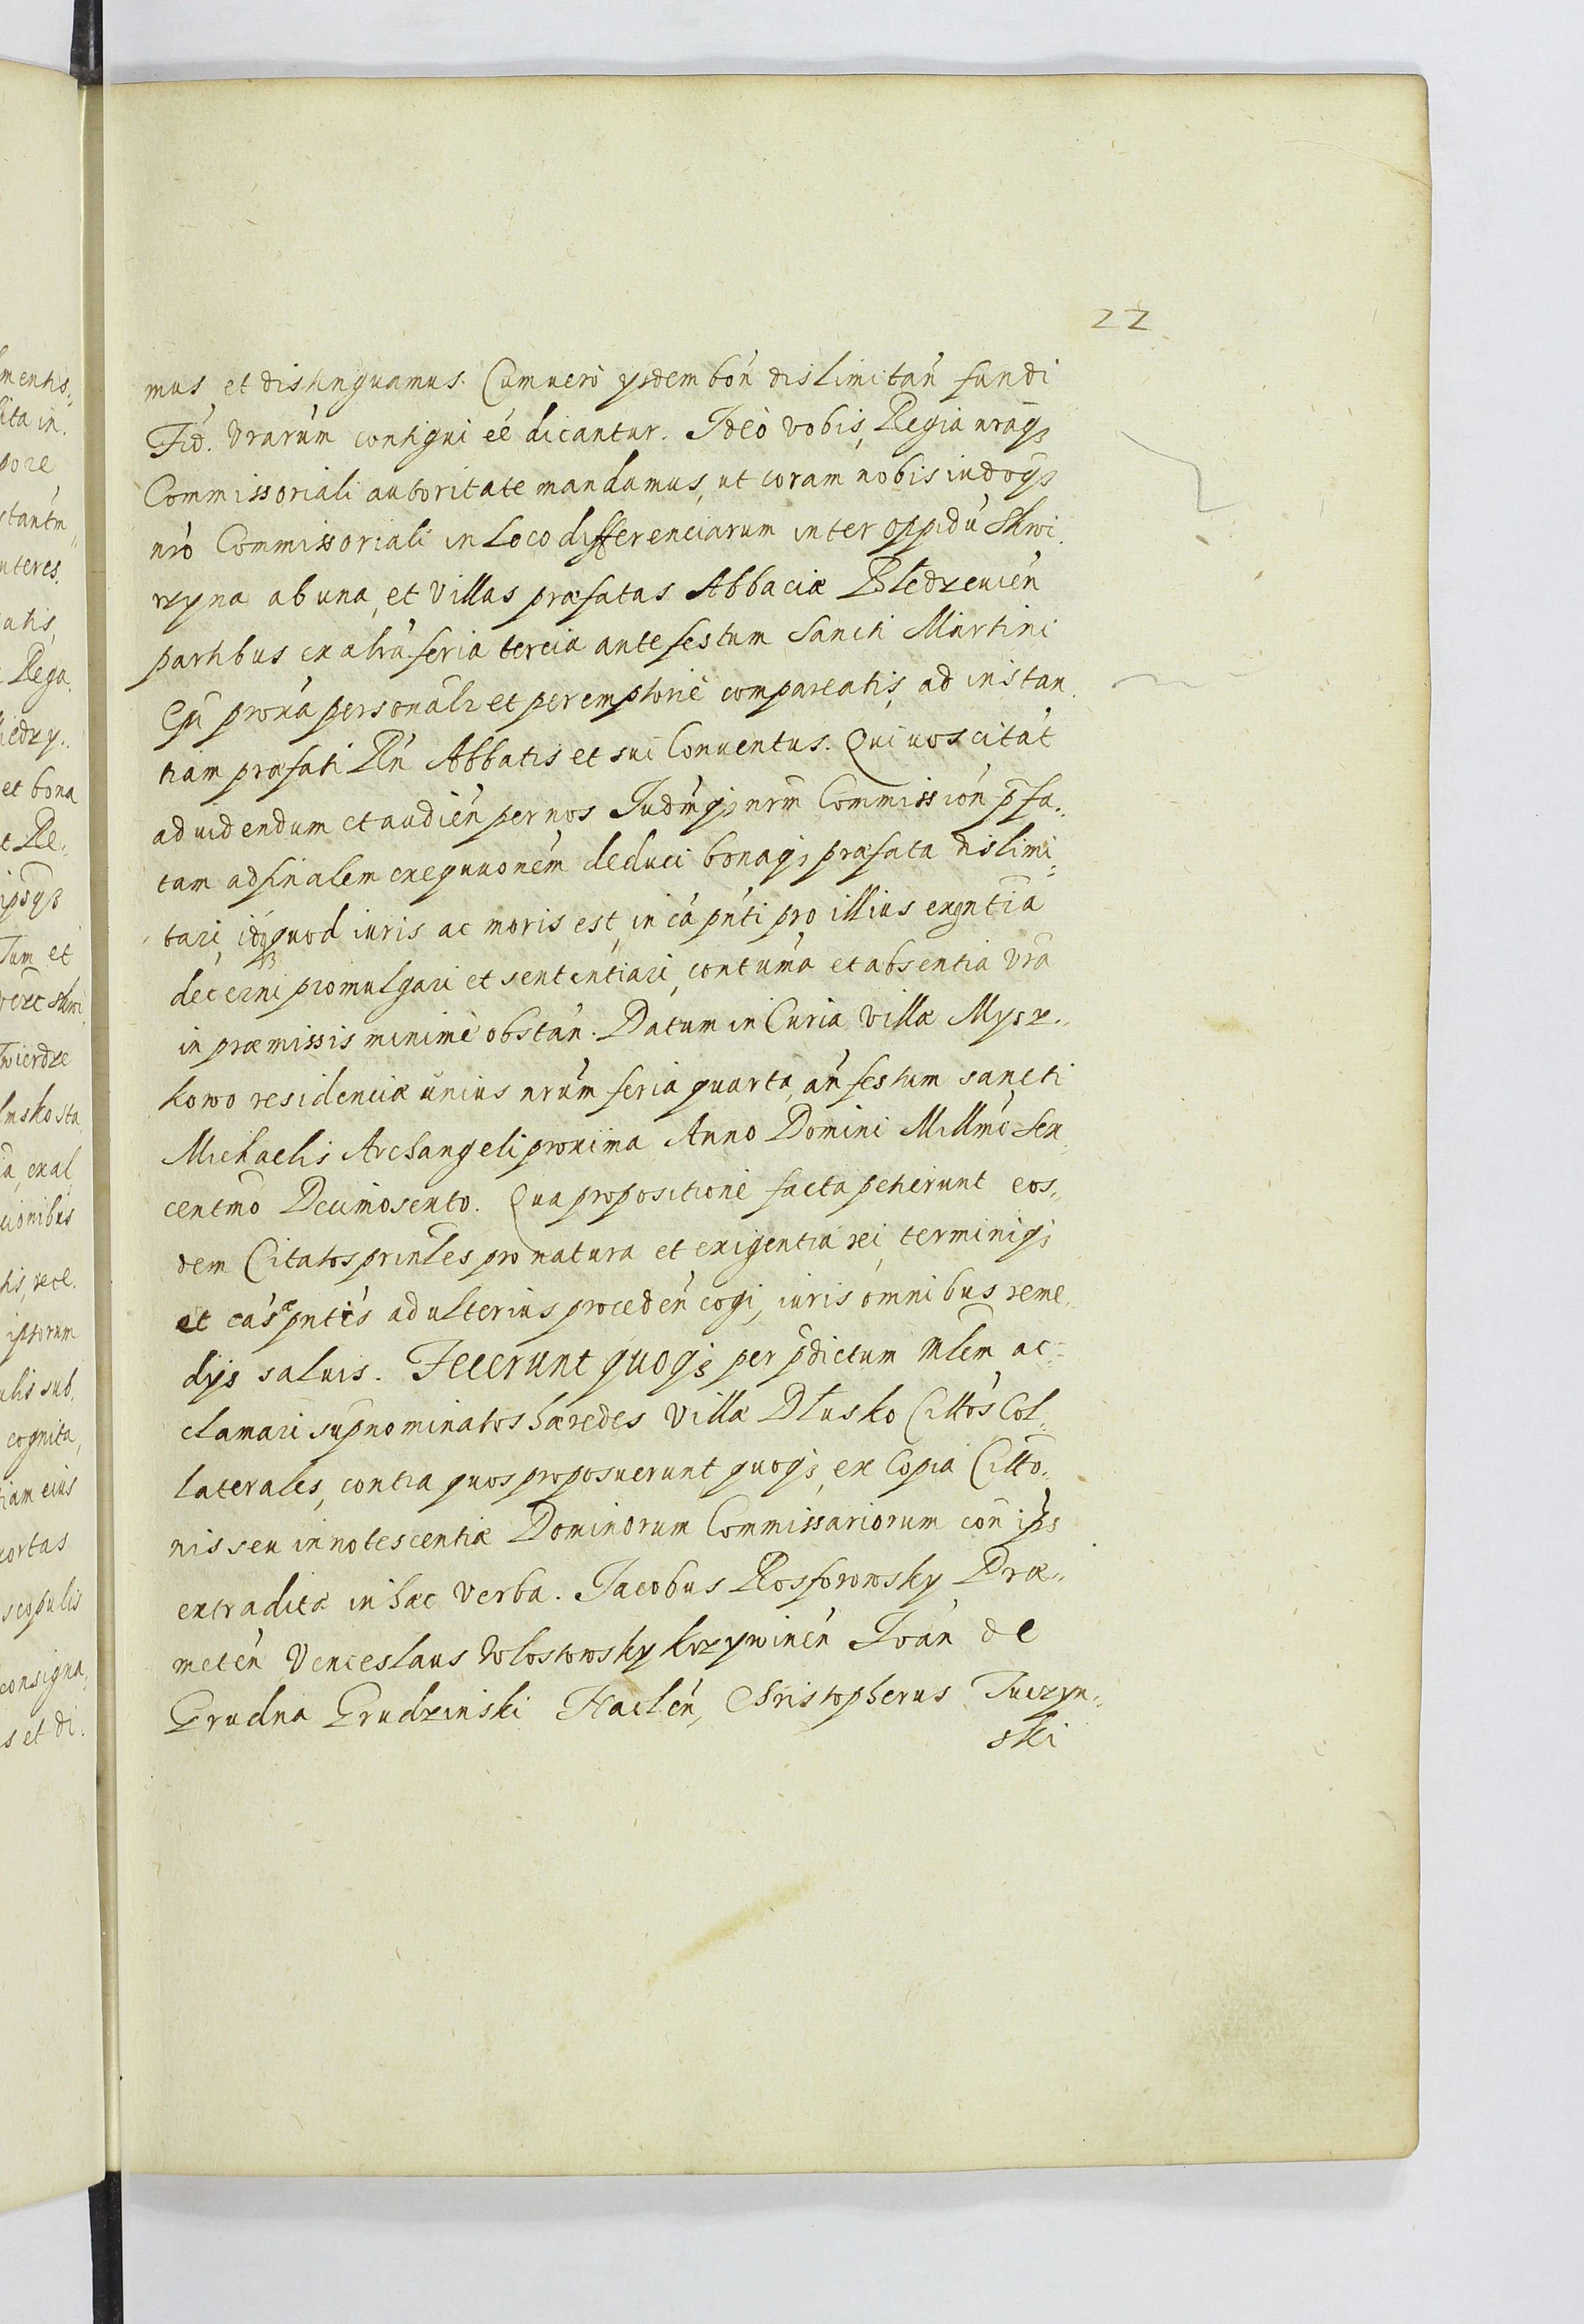 22
mus, et distinguamus. Cum vero ysdem bon dislimitan fundi
Fid. Vrarum contigui eé dicantur. Ideò vobis, Regia nraqꝫ
Commissoriali autoritate mandamus, ut coram nobis iudoqꝫ
nro Commissoriali in Loco differenciarum inter oppidu Skwi.
rzyna ab una, et Villas præfatas Abbaciæ Bledzeuien
partibus ex altra feria tercia ante festum Sancti Martini
Epi prona personalr et peremptoriè compareatis, ad instan.
tiam præfati Rn Abbatis et sui Conuentus. Qui vos citat
ad uidendum et audien per nos Judmqꝫ nrm Commission p̄fa..
tam ad finalem exequuonem deduci bonaqꝫ præfata dislimi=
tari, idqꝫ quod iuris ac moris est, in cá pnti pro illius exgntia
decerni promulgari et sententiari, contuma et absentia Vra
in præmissis minimè obstan. Datum in Curia Villæ Mysz..
kowo residenciæ unius nrum feria quarta, an festum sancti
Michaelis Archangeli proxima Anno Domini Millmo Sex
centmo Decimosexto. Qua propositione facta petierunt eos..
dem Citatos prinles pro natura et exigentia rei, terminiqꝫ
et cás pntis ad ulterius proceden cogi, iuris omnibus reme..
dys saluis. Fecerunt quoqꝫ per p̄dictum Mlem ac=
clamari supnominatos hæredes Villæ Dlusko Cittos Col..
laterales, contra quos proposuerunt quoqꝫ, ex Copia Citto..
nis seu innotescentiæ Dominorum Commissariorum con ips
extraditæ in hæc verba. Jacobus Rosforowsky Præ..
meten Venceslaus Wlostowsky Krzywinen Joan de
Grudna Grudzinski Naclen, Christopherus Tuczyn..
ski